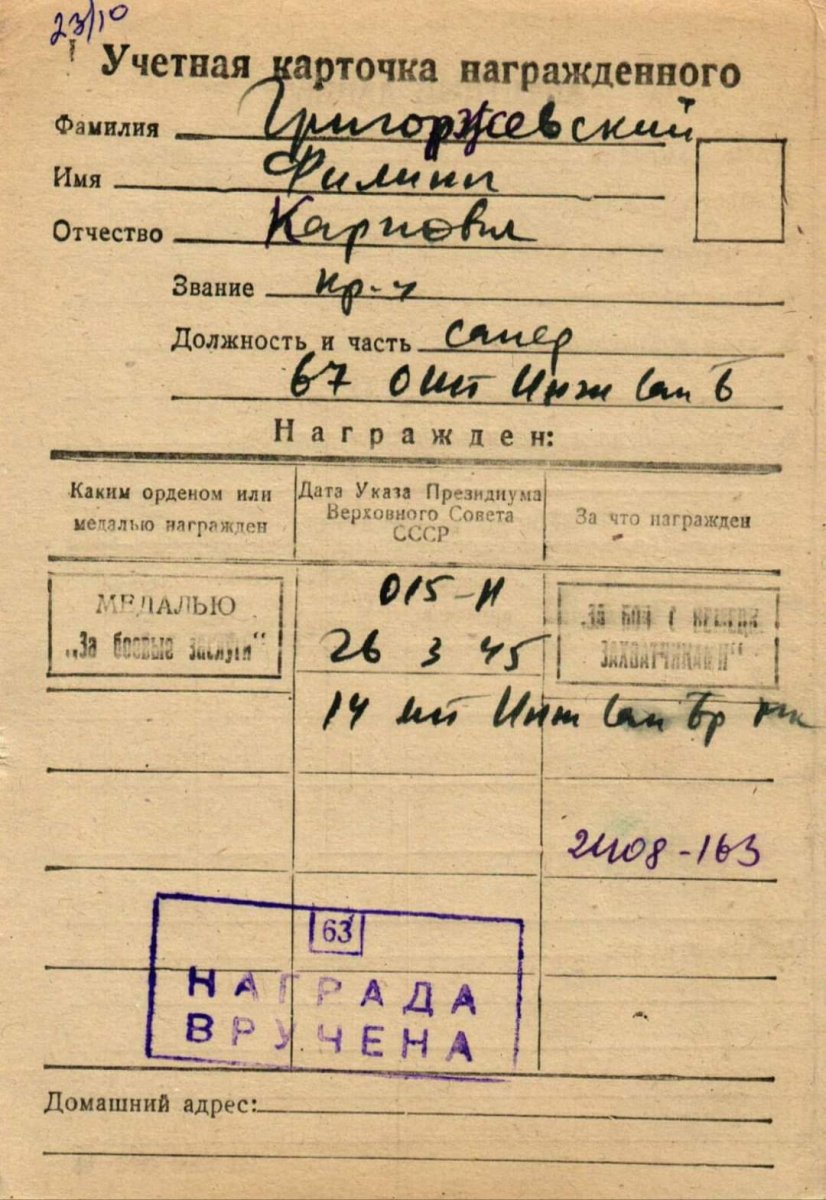 23/10
Учетная карточка награжденного
Фамилия Григоржевский
Имя Филипп
Отчество Карпович
Звание кр-ц
Должность и часть сапер
67 ОШТ Инж Сап Б
Награжден:
Каким орденом или медалью награжден
Дата Указа Президиума Верховного Совета СССР
За что награжден
МЕДАЛЬЮ
„За боевые заслуги“
015-Н
26 3 45
„ЗА БОИ С НЕМЕЦК. ЗАХВАТЧИКАМИ“
14 шт Инж Сап Бр
2408-163
63
НАГРАДА
ВРУЧЕНА
Домашний адрес: